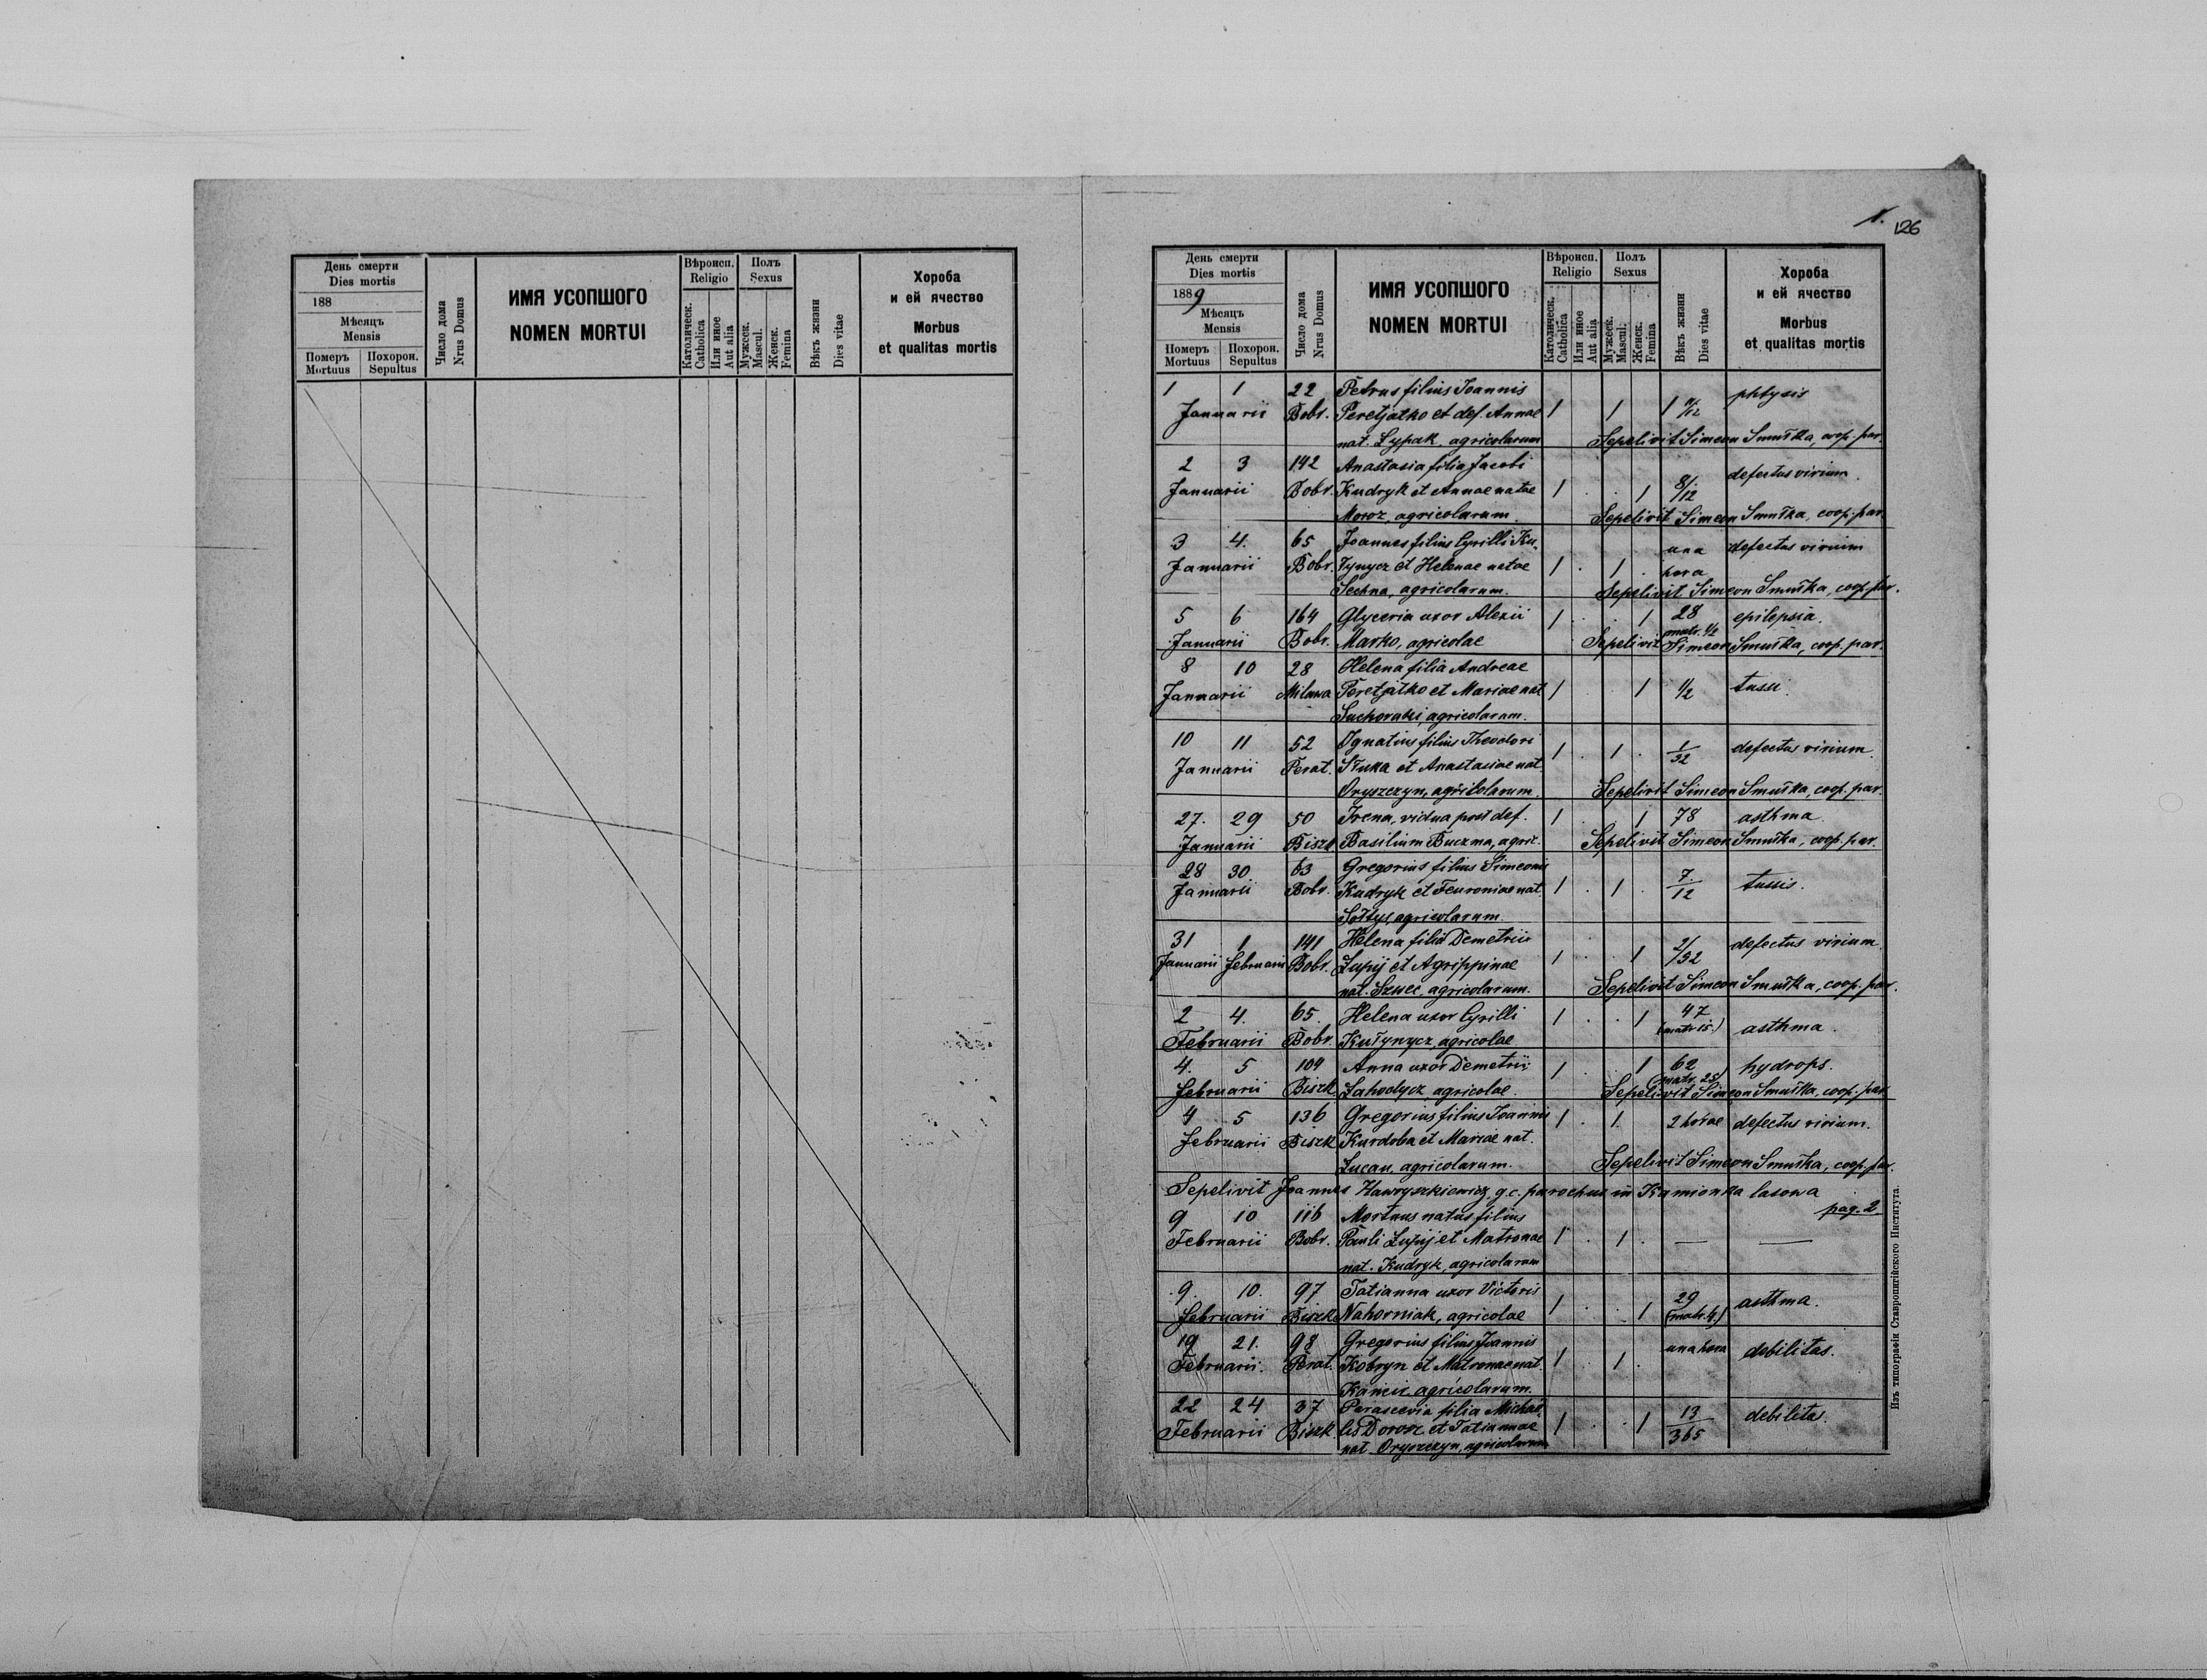 День смерти
Dies mortis
188
Мѣсяцъ
Mensis
Померъ
Mortuus
Похорон.
Sepultus
Число дома
Nrus Domus
ИМЯ УСОПШОГО
NOMEN MORTUI
Вѣроисп.
Religio
Католическ.
Catholica
Или иное
Aut alia
Полъ
Sexus
Мужеск.
Mascul.
Женск.
Femina
Вѣкъ жизни
Dies vitae
Хороба
и ей ячество
Morbus
et qualitas mortis
1. 126
День смерти
Dies mortis
1889
Мѣсяцъ
Mensis
Померъ
Mortuus
Похорон.
Sepultus
Число дома
Nrus Domus
ИМЯ УСОПШОГО
NOMEN MORTUI
Вѣроисп.
Religio
Католическ.
Catholica
Или иное
Aut alia
Полъ
Sexus
Мужеск.
Mascul.
Женск.
Femina
Вѣкъ жизни
Dies vitae
Хороба
и ей ячество
Morbus
et qualitas mortis
1 1 22 Petrus filius Joannis phtysis
Januarii Bobr. Peretjatko et def. Annae 1 1 1
nat. Lypak, agricolarum Sepelivit Simeon Smutka, coop. par.
2 3 142 Anastasia filia Jacobi defectus virium
Januarii Bobr. Kudryk et Annae natae 1 . . 1 8/12
Moroz, agricolarum Sepelivit Simeon Smutka, coop. par.
3 4. 65 Joannes filius Cyrilli Ku- una defectus virium
Januarii Bobr. tynycz et Helenae natae 1 . 1 . hora
Sechna, agricolarum. Sepelivit Simeon Smutka, coop. par.
5 6 164 Glyceria uxor Alexii 1 . . 1 28 epilepsia.
Januarii Bobr. Marko, agricolae matr. 1/2 Sepelivit Simeon Smutka, coop. par.
8 10 28 Helena filia Andreae
Januarii Milawa Peretjatko et Mariae nat 1 . . 1 1/2 tussi.
agricolarum.
10 11 52 Ignatius filius Theodori defectus virium
Januarii Perat. et Anastasiae nat. 1 . 1 . 1/32
Oryszczyn, agricolarum. Sepelivit Simeon Smutka, coop. par.
27. 29 50 Irena, vidua post def. 1 . . 1 78 asthma
Januarii Biszk Basilium Buczma, agric. Sepelivit Simeon Smutka, coop. par.
28 30 63 Gregorius filius Simeonis
Januarii Bobr. Kudryk et Feuroniae nat. 1 . 1 . 7/12 tussis.
Sołtys, agricolarum.
31 1 141 Helena filia Demetrii defectus virium.
Januarii Februarii Bobr. Łupij et Agrippinae 1 . . 1 2/32
nat. Szwec, agricolarum. Sepelivit Simeon Smutka, coop. par.
2 4. 65. Helena uxor Cyrilli 1 . . 1 47
Februarii Bobr. Kutynycz, agricolae (matr. 15.) asthma.
4. 5 104 Anna uxor Demetrii 1 . . 1 62 hydrops.
Februarii Biszk. Łahodycz agricolae. (matr. 25) Sepelivit Simeon Smutka, coop. par.
4 5 136 Gregorius filius Joannis 1 . 1. 2 horae defectus virium.
Februarii Biszk Kurdoba et Mariae nat.
Łucan, agricolarum. Sepelivit Simeon Smutka, coop. par.
Sepelivit Joannes Hawryszkiewicz, g. c. parochus in Kamionka lasowa
pag. 2.
9 10 116 Mortuus natus filius
Februarii Bobr. Pauli Łupij et Matronae 1 . 1 . — —
nat. Kudryk, agricolarum
9. 10. 97 Tatianna uxor Victoris 29 asthma.
Februarii Biszk Nahorniak, agricolae 1 . . 1 (matr. 4.)
19 21. 98 Gregorius filius Joannis una hora debilitas.
Februarii. Perat. Kobryn et Matronae nat. 1 . 1 .
agricolarum.
22 24 37 Parascevia filia Michaë- 13/365 debilitas.
Februarii Biszk. lis Dorosz et Tatiannae 1 . . 1
nat. Oryszczyn, agricolarum
Изъ типографіи Ставропигійского Института.